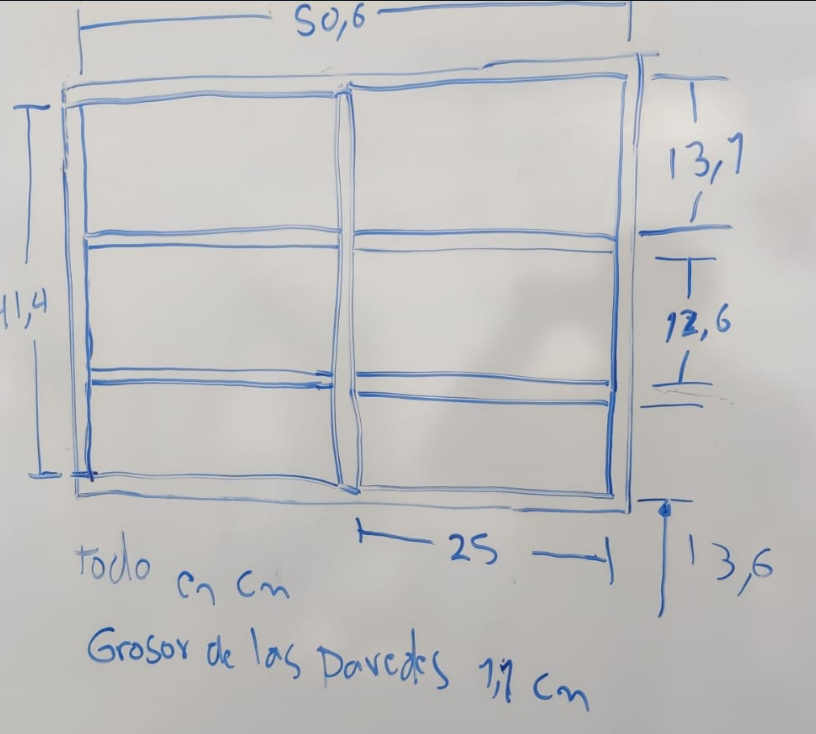 50,6
13,1
41,4
12,6
25
13,6
todo en cm
Grosor de las Paredes 1,1 cm